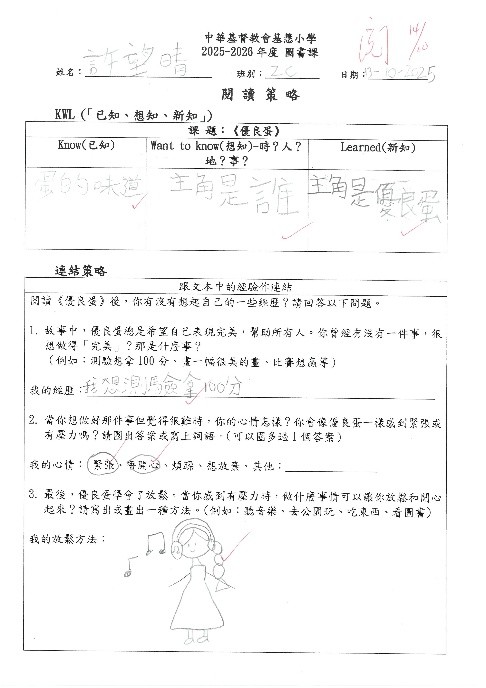 中華基督教會基慧小學
2025-2026 年度 圖書課
閱 14/10
姓名：許望晴 班別：2C 日期：13-10-2025
閱讀策略
KWL (「已知、想知、新知」)
課題：《優良蛋》
Know(已知) Want to know(想知)-時?人?地?事? Learned(新知)
蛋的味道 主角是誰 主角是優良蛋
連結策略
跟文本中的經驗作連結
閱讀《優良蛋》後，你有沒有想起自己的一些經歷？請回答以下問題。
1. 故事中，優良蛋總是希望自己表現完美，幫助所有人。你曾經有沒有一件事，很
想做得「完美」？那是什麼事？
(例如：測驗想拿100分、畫一幅很美的畫、比賽想贏等)
我的經歷：我想測驗拿100分
2. 當你想做好那件事但覺得很難時，你的心情怎樣？你會像優良蛋一樣感到緊張或
有壓力嗎？請圈出答案或寫上詞語。(可以圈多過1個答案)
我的心情：緊張、不開心、煩躁、想放棄、其他：
3. 最後，優良蛋學會了放鬆。當你感到有壓力時，做什麼事情可以讓你放鬆和開心
起來？請寫出或畫出一種方法。(例如：聽音樂、去公園玩、吃東西、看圖書)
我的放鬆方法：